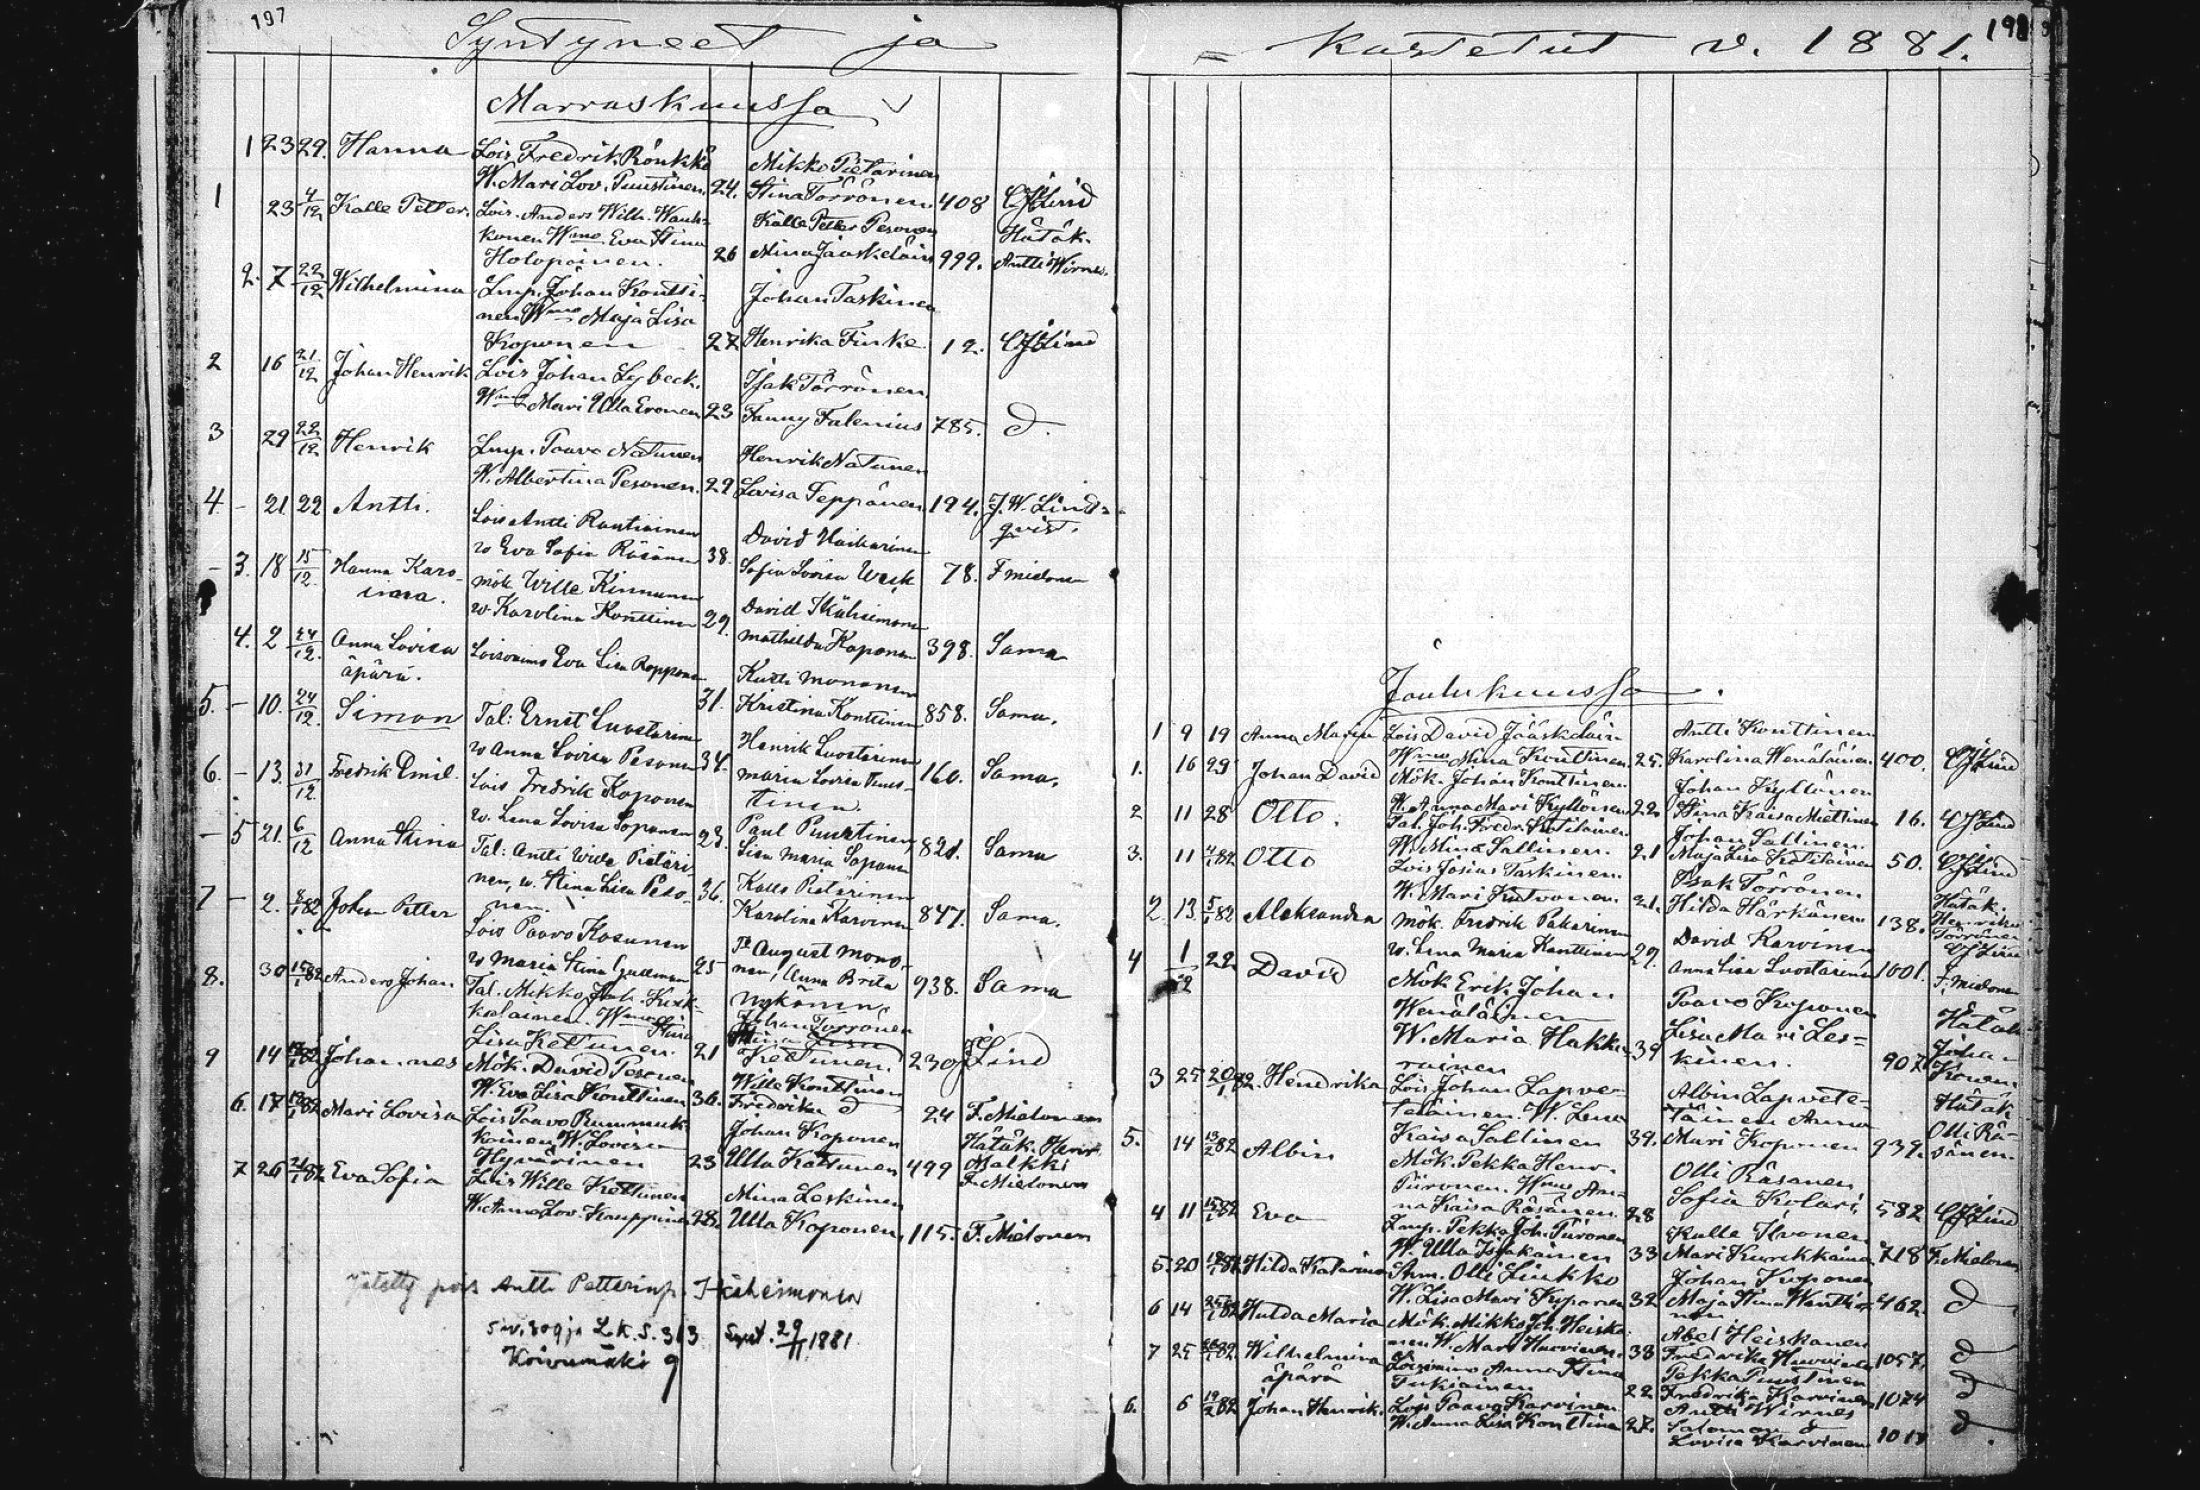 197
Syntyneet ja
Marraskuussa
1 23 29. Hanna Lois Fredrik Rönkkö Mikko Pietarinen
W. Mari Lov. Puustinen. 24. Stina Törrönen. 408 CJLind
1 23 4/12 Kalle Petter. Lois. Anders Wilh. Wauh- Kalle Petter Pesonen Hätäk.
konen Wmo Eva Stina
Holopainen. 26 Mina Jääskeläin 999. Antti Wirnes.
2. 7 22/12 Wilhelmina Lmp. Johan Kontti- Johan Taskinen
nen Wmo Maja Lisa
Koponen 27 Henrika Finke. 12. CJLind
2 16 21/12 Johan Henrik Lois Johan Lybeck. Isak Törrönen
Wmo Mari Ulla Eronen 23 Fanny Falenius 785. d.
3 29 22/12 Henrik Lmp. Paavo Natunen Henrik Natunen
W. Albertina Pesonen. 29 Lovisa Teppänen 194. J. W. Lind-
qvist.
4 - 21 22 Antti. Lois Antti Rautiainen David Haikarinen
w Eva Sofia Räsänen 38. Sofia Lovisa Wesk 78. F Mielonen
- 3. 18 15/12. Hanna Karo- mök Wille Kinnunen David Ikäheimonen
iina. w Karolina Konttinen 29. Mathilda Koponen 398. Sama
4. 2 24/12. Anna Lovisa Loisonimo Eva Lisa Ropponen Kusti Mononen
äpärä. 31. Kristina Konttinen 858. Sama.
5. - 10. 24/12. Simon Tal: Ernst Luostarinen Henrik Luostarinen
w Anna Lovisa Pesonen 34. Maria Lovisa Puus- 160. Sama.
tinen
6. - 13. 31/12 Fredrik Emil. Lois Fredrik Koponen Paul Puustinen
w. Lena Lovisa Soponen 23. Lisa Maria Soponen 821. Sama
- 5 21. 6/12 Anna Stina Tal: Antti Wille Pietäri- Kalls Pietärinen
nen, w. Stina Lisa Peso- 36. Karolina Karvinen 847. Sama.
nen.
7 - 2. 8/1 82 Johan Petter Lois Paavo Kosunen Tk August Mono-
w Maria Stina Gullman 25 nen, Anna Brita 938. Sama
Nykänen
8. 30 15/1 82 Anders Johan Tal. Mikko Joh. Kiek- Johan Törrönen
koelainen. Wmo Stina Stina Lisa
Lisa Kettunen. 21 Kettunen. 230 CJLind
9 14 82 Johannes Mök. David Pesonen Wille Konttinen
W. Eva Lisa Konttinen 36. Fredrika d 24 F. Mielonen
6. 17 82 Mari Lovisa Lois Paavo Rummuk- Johan Koponen Hätäk. Henr.
kainen W. Lovisa
Hyvärinen 23 Ulla Kettunen 499 Malkki
F. Mielonen
7 26 21/1 82 Eva Sofia Lois Wille Kettunen Mina Leskinen
W. Anna Lov. Kauppinen 28. Ulla Koponen. 115. F. Mielonen
Jätetty pois Antti Petterinp. Ikäheimonen
siv. 309 ja L.K.S. 313 Synt. 29/11 1881
Koivumäki 9
198
- Kastetut v. 1881.
Joulukuussa.
1 9 19 Anna Maria Lois David Jääskeläin Antti Konttinen
Wmo Mina Konttinen. 25. Karolina Wenäläinen 400. CJLind
1. 16 29 Johan David Mök. Johan Konttinen Johan Kyllönen
W. Anna Mari Kyllönen 22 Stina Kaisa Miettinen 16. CJLind
2 11 28 Otto. Tal. Joh. Fredr. Kotilainen Johan Sallinen.
W. Mina Sallinen. 21 Maja Lisa Kotilainen 50. CJLind
3. 11 4/1 82 Otto Lois Josias Taskinen. Isak Törrönen Hätäk.
W. Mari Kutvonen. 21. Hilda Härkönen 138. Henriku
Törrönen
CJLind
2. 13. 5/1 82 Aleksandra Mök. Fredrik Pakarinen David Karvinen
w. Lena Maria Konttinen 29. Anna Lisa Luostarinen 1001. F. Mielonen
4 1/12 22 David Mök Erik Johan Paavo Koponen Hätäk
Wenäläinen Lisa Mari Les-
W. Maria Hakka- 39 kinen. 907 Johan
rainen Konen
3 25 20/1 82. Hendrika Lois Johan Lapve- Albin Lapvete- Hätäk
teläinen. W. Lena läinen Anna
Kaisa Sallinen 39. Mari Koponen 939. Olli Rä-
sänen.
5. 14 13/2 82 Albin Mök. Pekka Henr. Olli Räsänen
Piironen. Wmo An-
na Kaisa Räsänen. 28 Sofia Kolari 582 CJLind
4 11 15/1 82 Eva Lmp. Pekka Joh. Piironen Kalle Kvonen
W. Ulla Issakainen 33 Mari Kurikkainen 718 F. Mielonen
5. 20 18/1 82 Hilda Katarina Snm. Olli Liukko Johan Koponen
W. Lisa Mari Koponen 32 Maja Stina Wenthi- 462. d
nen
6 14 25/1 82 Hulda Maria Mök. Mikko Joh. Heiska- Abel Heiskanen
nen W. Mari Huovinen. 38 Fredrika Huovinen 1057. d
7 25 82. Wilhelmina Loisnimo Anna Stina Pekka Puustinen
äpärä Tukiainen 22. Fredrika Karvinen 1074 d
6. 6 19/2 82 Johan Henrik. Lois Paavo Karvinen Antti Wirnes
W. Anna Lisa Konttinen 27. Salomon d
Lovisa Karvinen 1019 d.